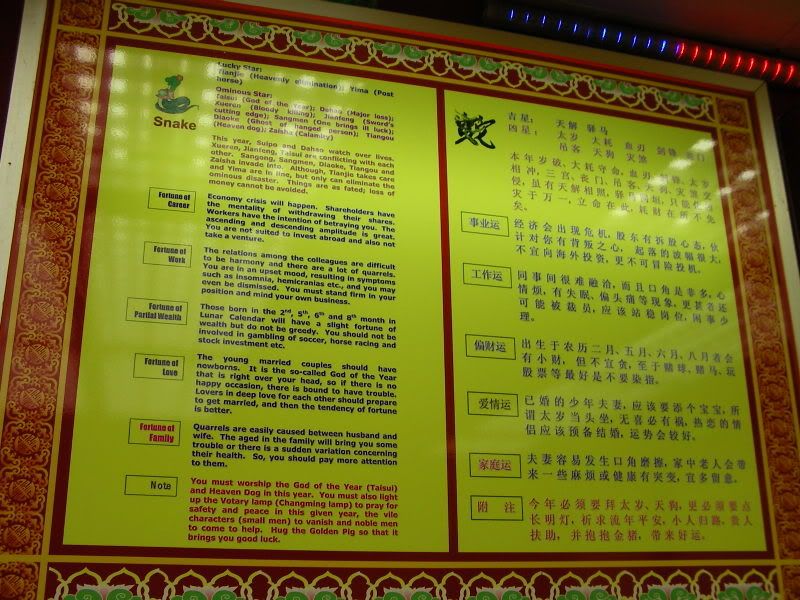 Snake
Lucky Star:
Tianjie (Heavenly elimination); Yima (Post
horse)
Ominous Star:
Taisui (God of the Year); Dahao (Major loss);
Xueren (Bloody killing); Jianfeng (Sword's
cutting edge); Sangmen (One brings ill luck);
Diaoke (Ghost of hanged person); Tiangou
(Heaven dog); Zaisha (Calamity)
This year, Suipo and Dahao watch over lives.
Xueren, Jianfeng, Taisui are conflicting with each
other. Sangong, Sangmen, Diaoke, Tiangou and
Zaisha invade into. Although, Tianjie takes care
and Yima are in line, but only can eliminate the
ominous disaster. Things are as fated; loss of
money cannot be avoided.
Fortune of
Career
Economy crisis will happen. Shareholders have
the mentality of withdrawing their shares.
Workers have the intention of betraying you. The
ascending and descending amplitude is great.
You are not suited to invest abroad and also not
take a venture.
Fortune of
Work
The relations among the colleagues are difficult
to be harmony and there are a lot of quarrels.
You are in an upset mood, resulting in symptoms
such as insomnia, hemicranias etc., and you may
even be dismissed. You must stand firm in your
position and mind your own business.
Fortune of
Partial Wealth
Those born in the 2nd, 5th, 6th and 8th month in
Lunar Calendar will have a slight fortune of
wealth but do not be greedy. You should not be
involved in gambling of soccer, horse racing and
stock investment etc.
Fortune of
Love
The young married couples should have
newborns. It is the so-called God of the Year
that is right over your head, so if there is no
happy occasion, there is bound to have trouble.
Lovers in deep love for each other should prepare
to get married, and then the tendency of fortune
is better.
Fortune of
Family
Quarrels are easily caused between husband and
wife. The aged in the family will bring you some
trouble or there is a sudden variation concerning
their health. So, you should pay more attention
to them.
Note
You must worship the God of the Year (Taisui)
and Heaven Dog in this year. You must also light
up the Votary lamp (Changming lamp) to pray for
safety and peace in this given year, the vile
characters (small men) to vanish and noble men
to come to help. Hug the Golden Pig so that it
brings you good luck.
蛇
吉星： 天解 驿马
凶星： 太岁 大耗 血刃 剑锋 丧门
吊客 天狗 灾煞
本年岁破、大耗守命，血刃、剑锋、太岁
相冲，三宫、丧门、吊客、天狗、灾煞来
侵，虽有天解相照，驿马同垣，只能化凶
灾于万一，立命在此，耗财在所不免
矣。
事业运
经济会出现危机，股东有拆股心态，伙
计对你有背叛之心，起落的波幅很大，
不宜向海外投资，更不可冒险投机。
工作运
同事间很难融洽，而且口角是非多，心
情烦，有失眠、偏头痛等现象，更甚者还
可能被裁员，应该站稳岗位，闲事少
理。
偏财运
出生于农历二月、五月、六月、八月者会
有小财，但不宜贪，至于赌球、赌马、玩
股票等最好是不要染指。
爱情运
已婚的少年夫妻，应该要添个宝宝，所
谓太岁当头坐，无喜必有祸，热恋的情
侣应该预备结婚，运势会较好。
家庭运
夫妻容易发生口角磨擦，家中老人会带
来一些麻烦或健康有突变，宜多留意。
附 注
今年必须要拜太岁、天狗，更必须要点
长明灯，祈求流年平安，小人归路，贵人
扶助，并抱抱金猪，带来好运。